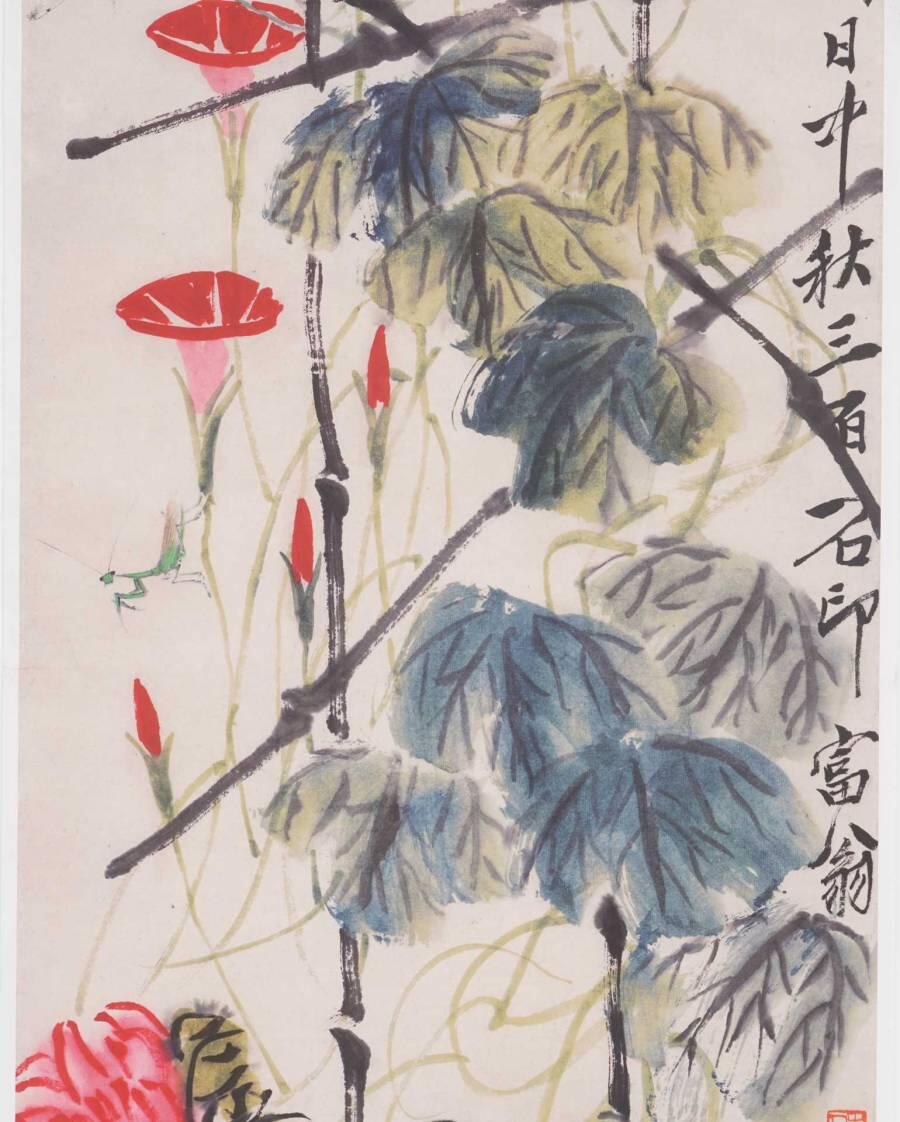 日中秋三百石印富翁